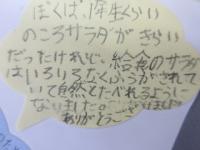 ぼくは、1年生くらい
のころサラダがきらい
だったけれど、給食のサラダ
はいろいろなくふうがされて
いて自然とたべれるように
なりました。
ありがとうございました